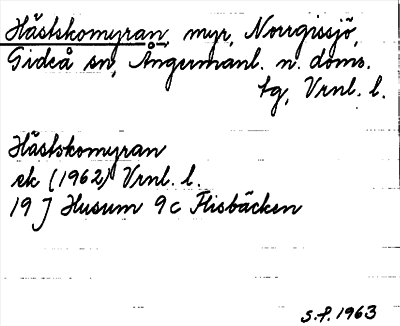 Hästskomyran, myr, Norrgissjö,
Gideå sn, Ångermanl. n. doms.
tg, Vrnl. l.
Hästskomyran
ek (1962) Vrnl. l.
19 J Husum 9c Flisbäcken
S.F. 1963